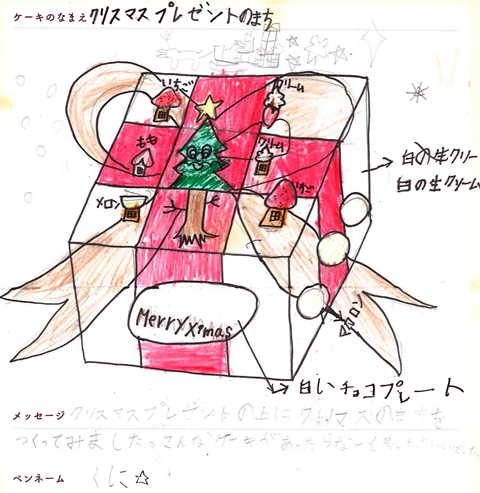 ケーキのなまえ クリスマスプレゼントのまち
いちご
クリーム
もも
クリーム
メロン
いちご
白の生クリー
白の生クリーム
マカロン
Merry X'mas
白いチョコプレート
メッセージ クリスマスプレゼントの上にクリスマスのまちを
つくってみました。こんなケーキがあったらなーと思って
ペンネーム くに☆